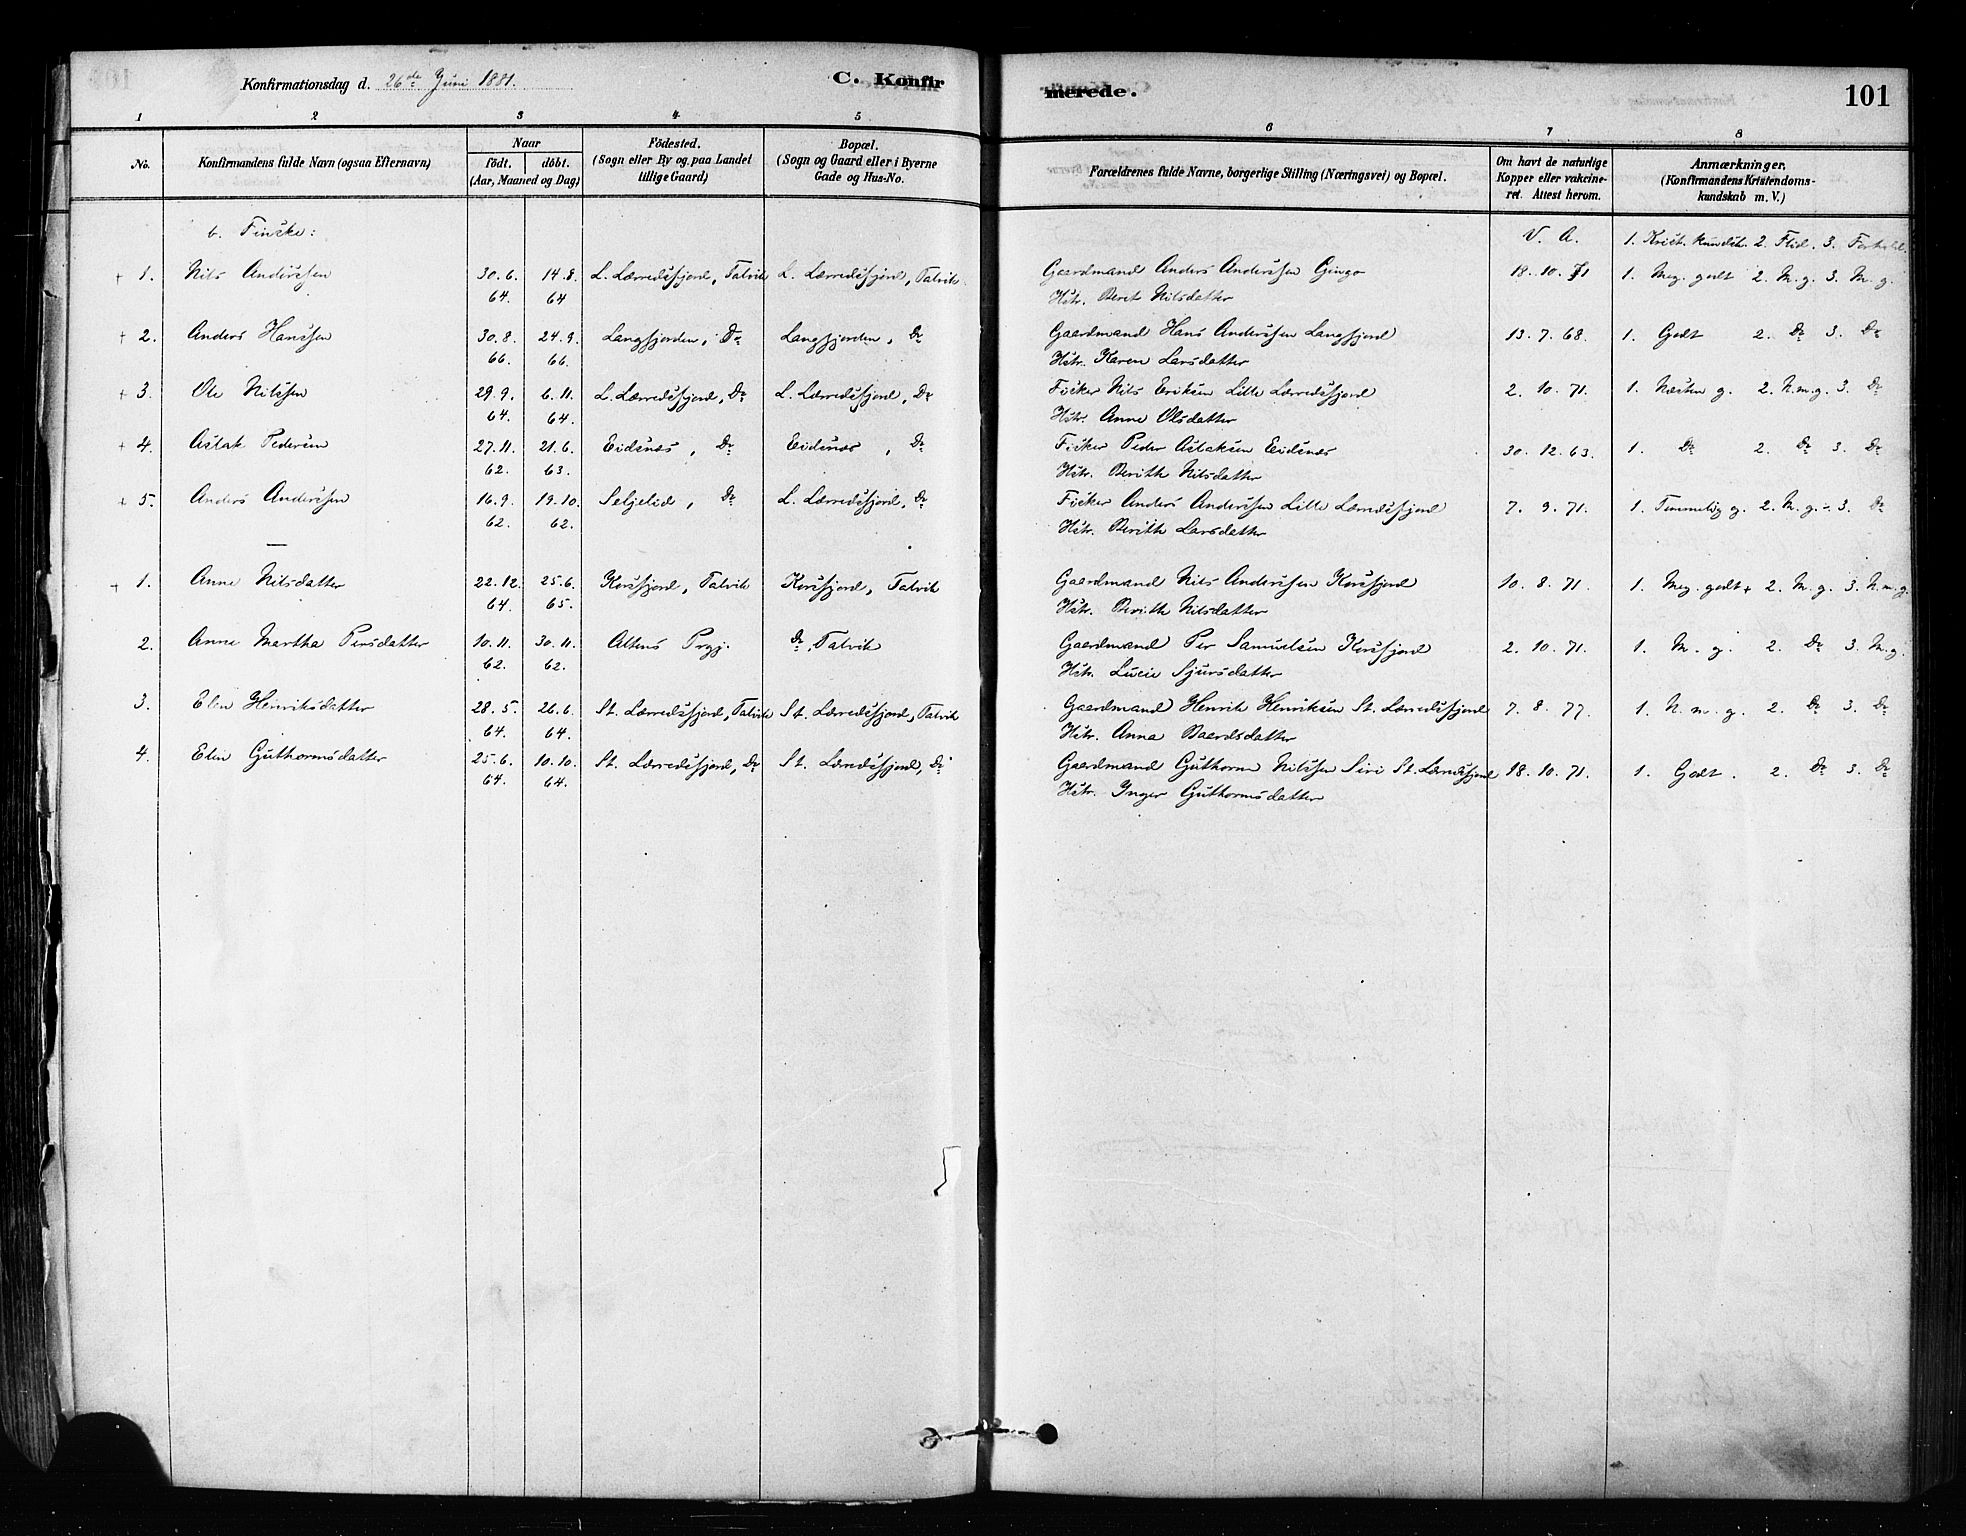 Konfirmationsdag d. 26de Juni 1881.
C. Konfir
merede.
101
1 2 3 4 5 6 7 8
No.
Konfirmandens fulde Navn (ogsaa Efternavn)
Naar
födt. döbt.
(Aar, Maaned og Dag)
Födested.
(Sogn eller By og paa Landet
tillige Gaard)
Bopæl.
(Sogn og Gaard eller i Byerne
Gade og Hus-No.
Forældrenes fulde Navne, borgerlige Stilling (Næringsvei) og Bopæl.
Om havt de naturlige
Kopper eller vakcine-
ret. Attest herom.
Anmærkninger,
(Konfirmandens Kristendoms-
kundskab m. V.)
b. Finske: V. A. 1. Krist. kundsk. 2. Flid. 3. Forhold.
+ 1. Nils Anderssen 30.6. 14.8. L. Lerredsfjord, Talvik L. Lerredsfjord, Talvik. Gaardmand Anders Anderssen Gingo 18. 10. 71 1. Meg. godt 2. M. g. 3. M. g.
64. 64 Hstr. Beret Nilsdatter
+ 2. Anders Hanssen 30.8. 24.9. Langfjorden, Do Langfjorden, Do Gaardmand Hans Anderssen Langfjord 13. 7. 68. 1. Godt 2. Do 3. Do
66. 66. Hstr. Karen Larsdatter
+ 3. Ole Nilssen 29.9. 6.11. L. Lerredsfjord, Do L. Lerredsfjord, Do Fisker Nils Eriksen Lille Lerredsfjord 2. 10. 71. 1. Næsten g. 2. N. m. g. 3. Do
64. 64. Hstr. Anne Olsdatter
+ 4. Aslak Pedersen 27.11. 21.6. Eidsnæs, Do Eidsnæs, Do Fisker Peder Aslaksen Eidsnæs 30. 12. 63. 1. Do 2. Do 3. Do
62. 63. Hstr. Berith Nilsdatter
+ 5. Anders Anderssen 16.9. 19.10. Seljelid, Do L. Lerredsfjord, Do Fisker Anders Anderssen Lille Lerredsfjord 7. 9. 71. 1. Temmelig g. 2. M. g. 3. Do
62. 62. Hstr. Berith Larsdatter
—
+ 1. Anne Nilsdatter 22.12. 25.6. Korsfjord, Talvik Korsfjord, Talvik Gaardmand Nils Anderssen Korsfjord 10. 8. 71. 1. Meg. godt + 2. M. g. 3. N. m. g.
64. 65. Hstr. Berith Nilsdatter
2. Anne Martha Persdatter 10.11. 30.11. Altens Prgj. Do, Talvik Gaardmand Per Samuelsen Korsfjord 2. 10. 71. 1. M. g. 2. Do 3. M. g.
62. 62. Hstr. Lucie Sjursdatter
3. Elen Henriksdatter 28.5. 26.6. St. Lerredsfjord, Talvik St. Lerredsfjord, Talvik Gaardmand Henrik Henriksen St. Lerredsfjord 7. 8. 77. 1. N. m. g. 2. Do 3. Do
64. 64. Hstr. Anna Baardsdatter
4. Elen Guthormsdatter 25.6. 10.10. St. Lerredsfjord, Do St. Lerredsfjord, Do Gaardmand Guthorm Nilssen Siri St. Lerredsfjord 18. 10. 71. 1. Godt. 2. Do 3. Do
64. 64. Hstr. Inger Guthormsdatter